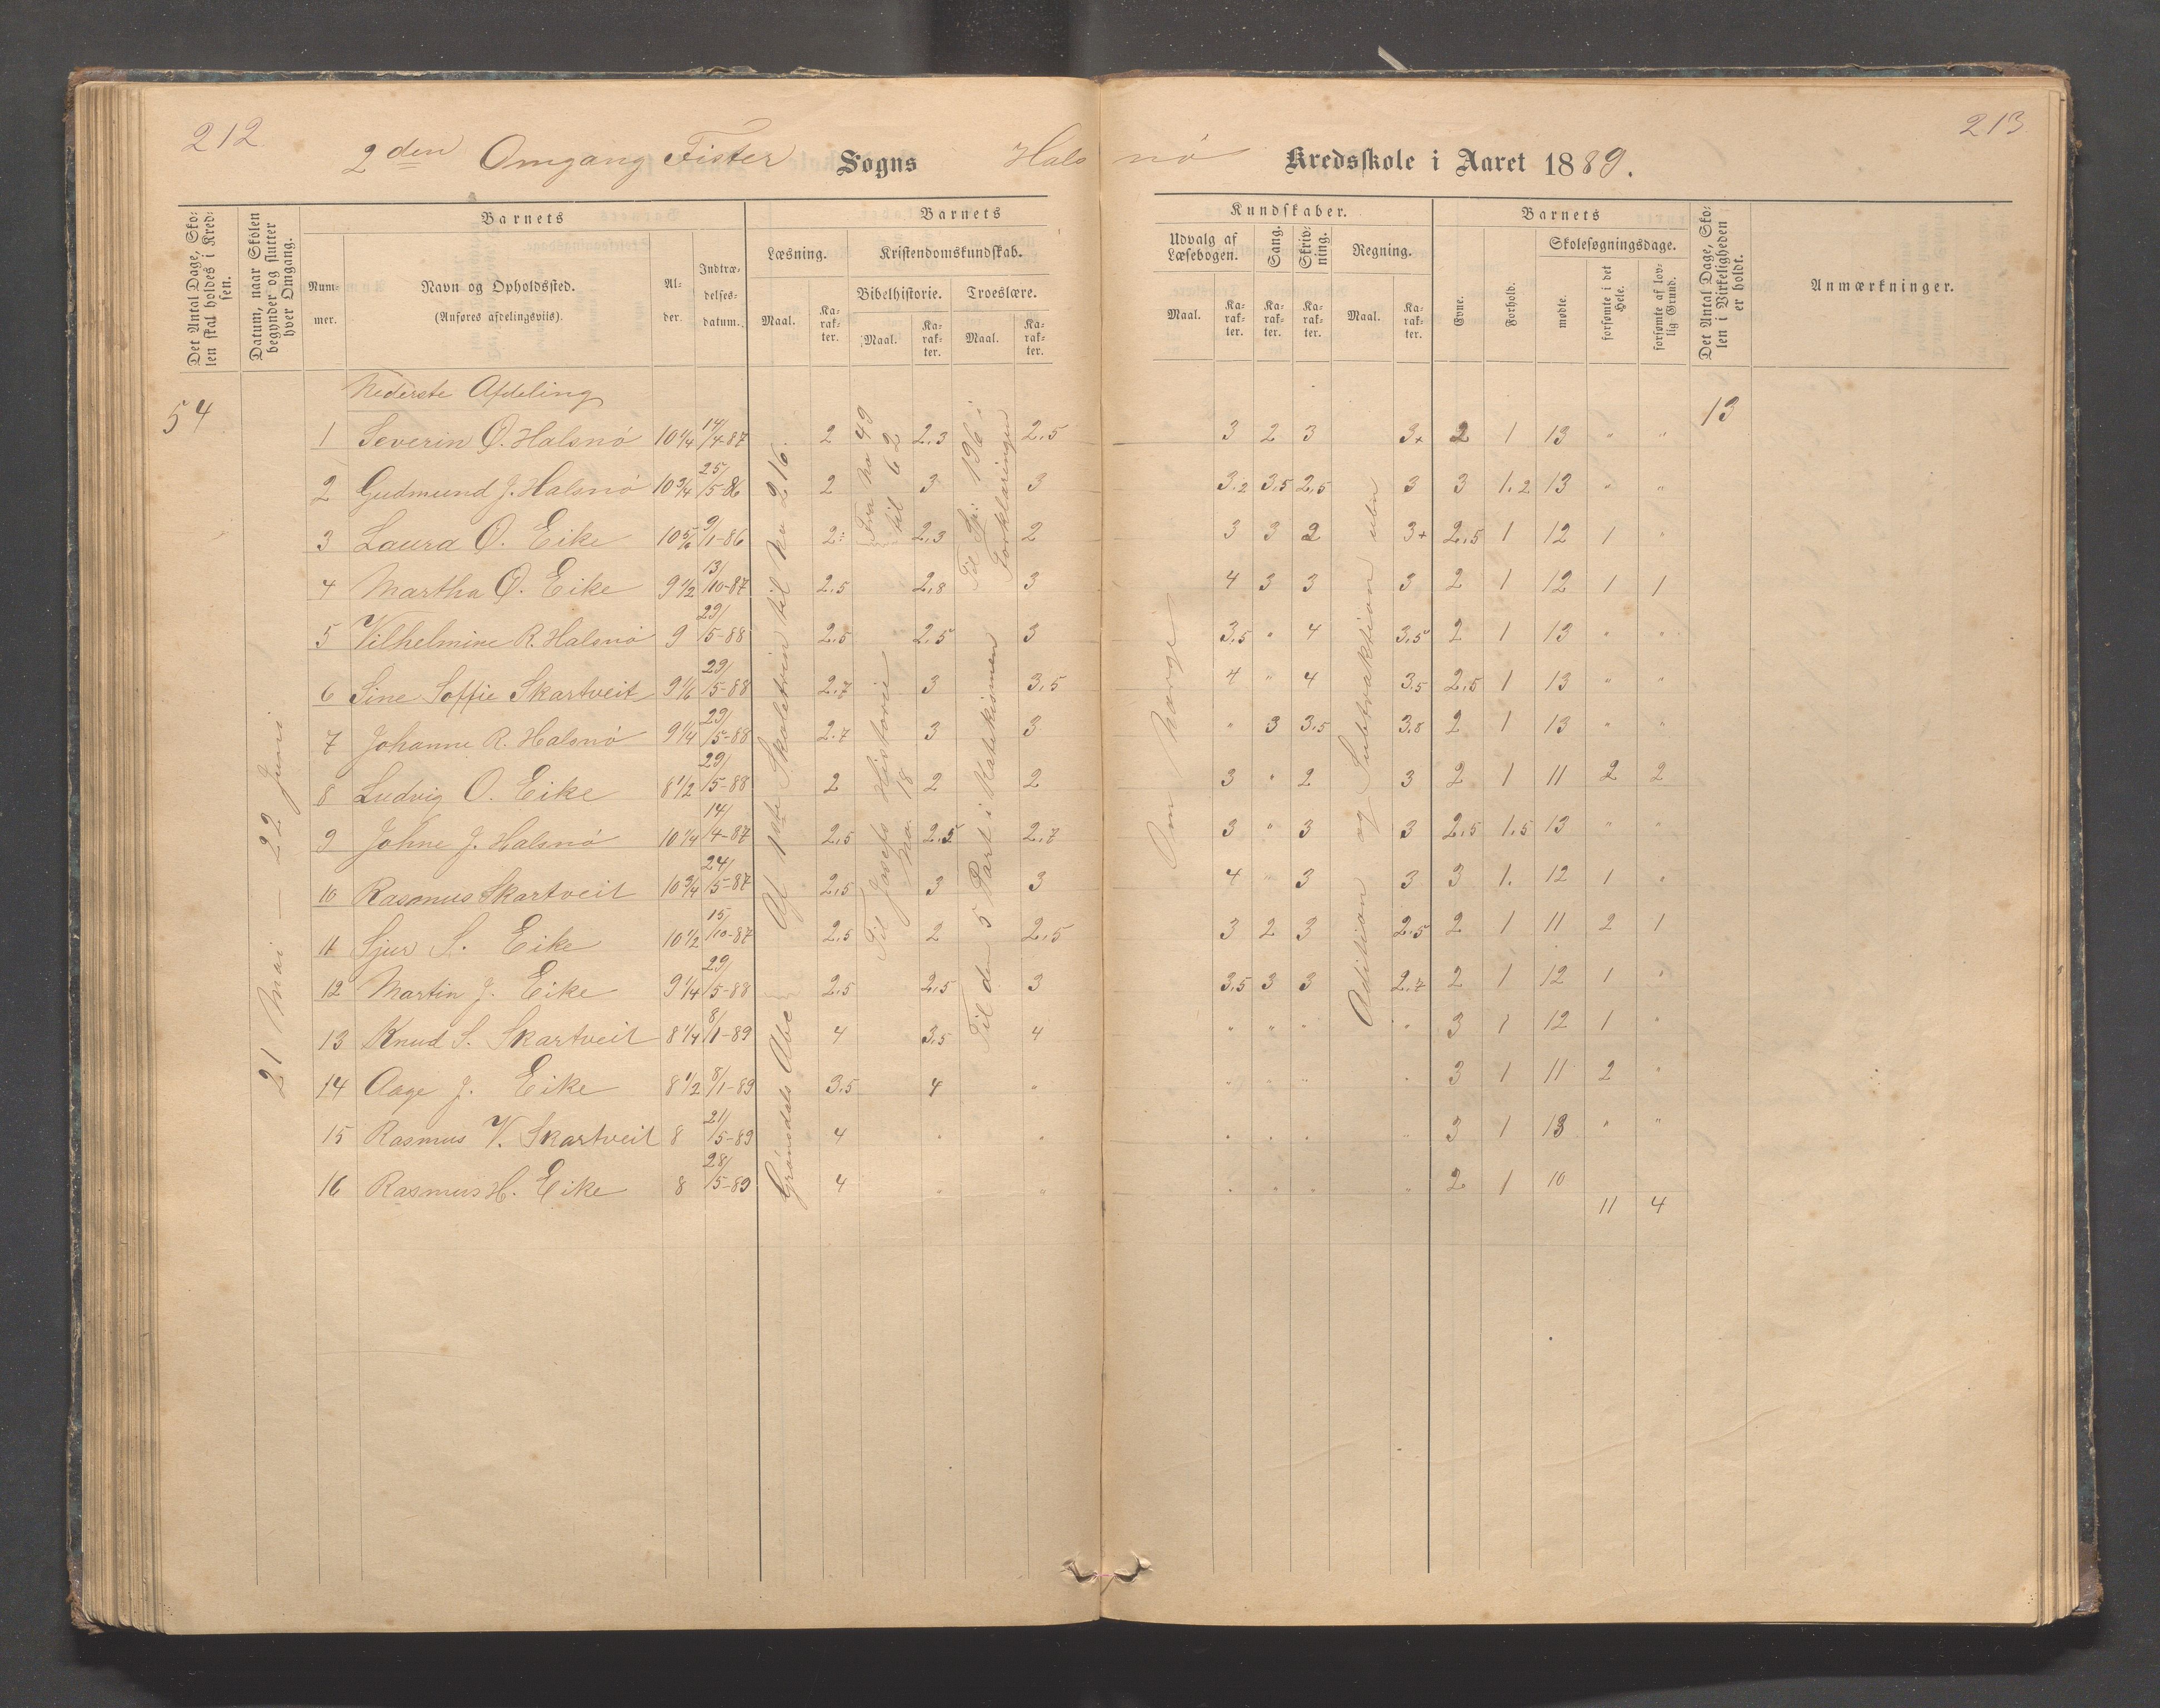 212
213
2den Omgang Fister Sogns Halsnö Kredsskole i Aaret 1889.
Det Antal Dage, Skolen skal holdes i Kredsen.
Datum, naar Skolen begynder og slutter hver Omgang.
Barnets
Nummer.
Navn og Opholdssted.
(Anføres afdelingsviis).
Alder.
Indtrædelsesdatum.
Barnets
Kundskaber.
Læsning.
Kristendomskundskab.
Bibelhistorie.
Troeslære.
Maal.
Karakter.
Maal.
Karakter.
Maal.
Karakter.
Udvalg af Læsebogen.
Sang.
Skrivning.
Regning.
Maal.
Karakter.
Karakter.
Karakter.
Maal.
Karakter.
Barnets
Evne.
Forhold.
Skolesøgningsdage.
mødte.
forsømte i det Hele.
forsømte af lovlig Grund.
Det Antal Dage, Skolen i Virkeligheden er holdt.
Anmærkninger.
54
21 Mai — 22 Juni
13
Nederste Afdeling
1 Severin O. Halsnö 10 1/4 14/4-87 2 2,3 2,5 3 2 3 3+ 2 1 13 " "
2 Gudmund J. Halsnö 10 3/4 25/5-86 2 3 3 3.2 3,5 2,5 3 3 1.2 13 " "
3 Laura O. Eike 10 5/6 9/1-86 2: 2,3 2 3 3 2 3+ 2,5 1 12 1 "
4 Martha O. Eike 9 1/2 13/10-87 2,5 2,8 3 4 3 3 3 2 1 12 1 1
5 Vilhelmine R. Halsnö 9 29/5-88 2,5 2,5 3 3,5 " 4 3,5 2 1 13 " "
6 Sine Soffie Skartveit 9 1/6 29/5-88 2,7 3 3,5 4 " 4 3,5 2,5 1 13 " "
7 Johanne R. Halsnö 9 1/4 29/5-88 2.7 3 3 " 3 3,5 3,8 2 1 13 " "
8 Ludvig O. Eike 8 1/2 29/5-88 2 2 2 3 " 2 3 2 1 11 2 2
9 Johne J. Halsnö 10 1/4 14/4-87 2,5 2,5 2,7 3 " 3 3 2,5 1.5 13 " "
10 Rasmus Skartveit 10 3/4 24/5-87 2,5 3 3 4 " 3 3 3 1. 12 1 "
11 Sjur S. Eike 10 1/2 15/10-87 2,5 2 2,5 3 2 3 2,5 2 1 11 2 1
12 Martin J. Eike 9 1/4 29/5-88 2,5 2,5 3 3,5 3 3 2,7 2 1 12 1 "
13 Knud S. Skartveit 8 1/4 8/1-89 4 3,5 4 " " " " 3 1 12 1 "
14 Aage J. Eike 8 1/2 8/1-89 3,5 4 " " " " " 3 1 11 2 "
15 Rasmus V. Skartveit 8 21/5-89 4 " " " " " " 3 1 13 " "
16 Rasmus H. Eike 8 28/5-89 4 " " " " " " 2 1 10
11 4
Af 1ste Skoletrin til No 216
Grönsdals Abc
Fra No 49 til 62
Til Josefs Historie No. 18
Til Sp: 196 i Forklaringen
Til den 5 Part i Katekismen
Om Norge
Addition og Subtraktion uden